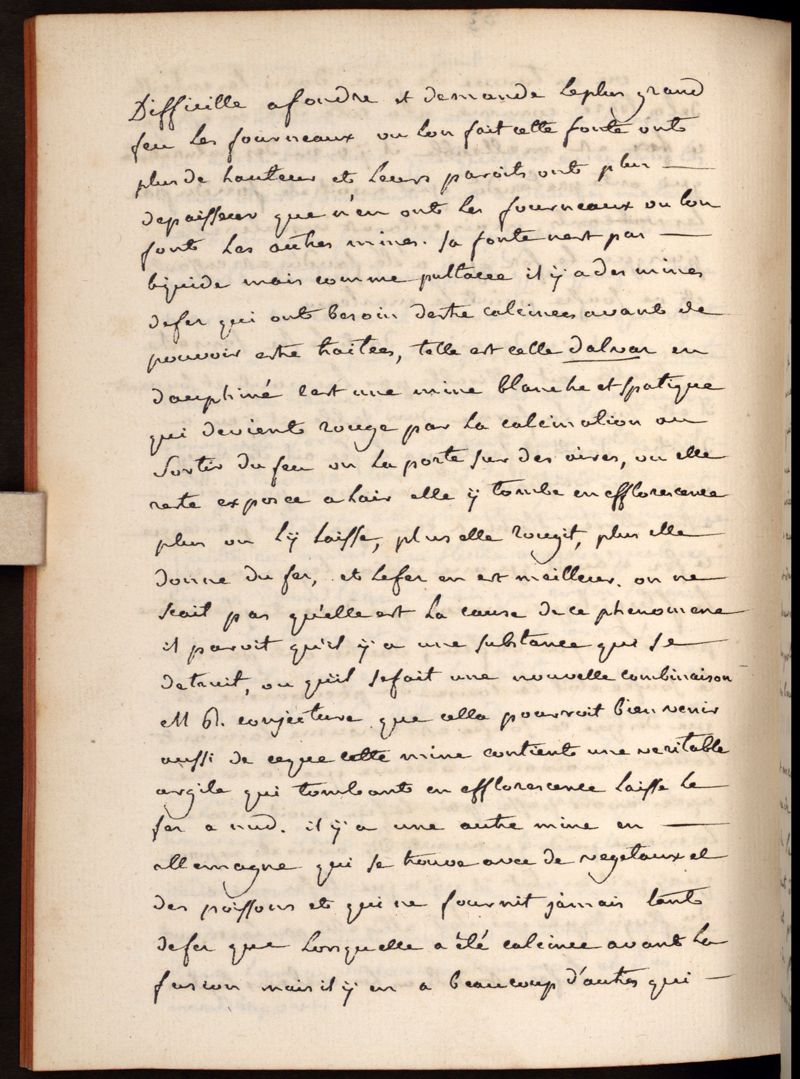 Difficille a fondre et demande le plus grand
feu les fourneaux ou lon fait cette fonte onts
plus de hauteur et leurs paroits onts plus —
depaisseur que n'en onts les fourneaux ou lon
fonts les autres mines. sa fonte nest pas —
liquide mais comme pultacee il ÿ a des mines
de fer qui onts besoin destre calcinees avants de
pouvoir estre traitees, telle est celle dalvar en
dauphiné cest une mine blanche et spatique
qui devients rouge par la calcination au
sortir du feu on la porte sur des aires, ou elle
reste exposee a lair elle ÿ tombe en efflorescence
plus on lÿ laisse, plus elle rougit, plus elle
donne du fer, et le fer en est meilleur. on ne
scait pas qu'elle est la cause de ce phenomene
il paroit qu'il ÿ a une substance qui se
detruit, ou qu'il se fait une nouvelle combinaison
M B. conjecture que cella pourroit bien venir
aussi de ceque cette mine contients une veritable
argile qui tombants en efflorescence laisse le
fer a nud. il ÿ a une autre mine en —
allemagne qui se trouve avec de vegetaux et
des poissons et qui ne fournit jamais tants
de fer que lorsquelle a été calcinee avants la
fusion mais il ÿ en a beaucoup d'autres qui —